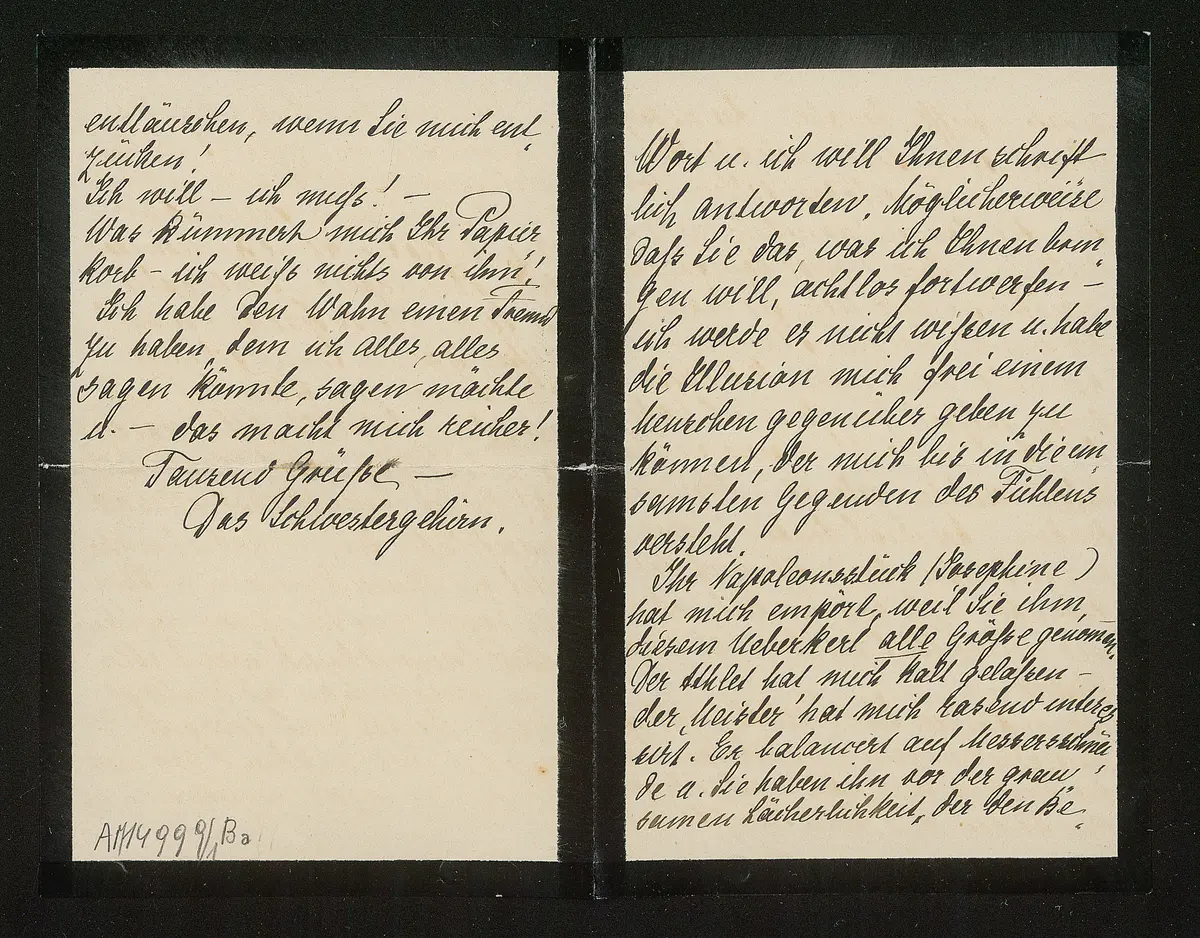 enttäuschen, wenn Sie mich ent„
zücken!
Ich will – ich muß! –
Was kümmert mich Ihr Papier
korb – ich weiß nichts von ihm!
Ich habe den Wahn einen Freund
zu haben, dem ich alles, alles
sagen könnte, sagen möchte
u. – das macht mich reicher!
Tausend Grüße –
Das Schwestergehirn.
AM 14999/1 Ba
Wort u. ich will Ihnen schrift
lich antworten. Möglicherweise
daß Sie das, was ich Ihnen brin„
gen will, achtlos fortwerfen –
ich werde es nicht wißen u. habe
die Illusion mich frei einem
Menschen gegenüber geben zu
können, der mich bis in die ein„
samsten Gegenden des Fühlens
versteht.
Ihr Napoleonsstück (Josephine)
hat mich empört, weil Sie ihm,
diesem Ueberkerl alle Größe genommen.
Der Athlet hat mich kalt gelaßen –
der „Meister' hat mich rasend interes
sirt. Er balancirt auf Messersschnei„
de u. Sie haben ihn vor der grau„
samen Lächerlichkeit, der den Be„